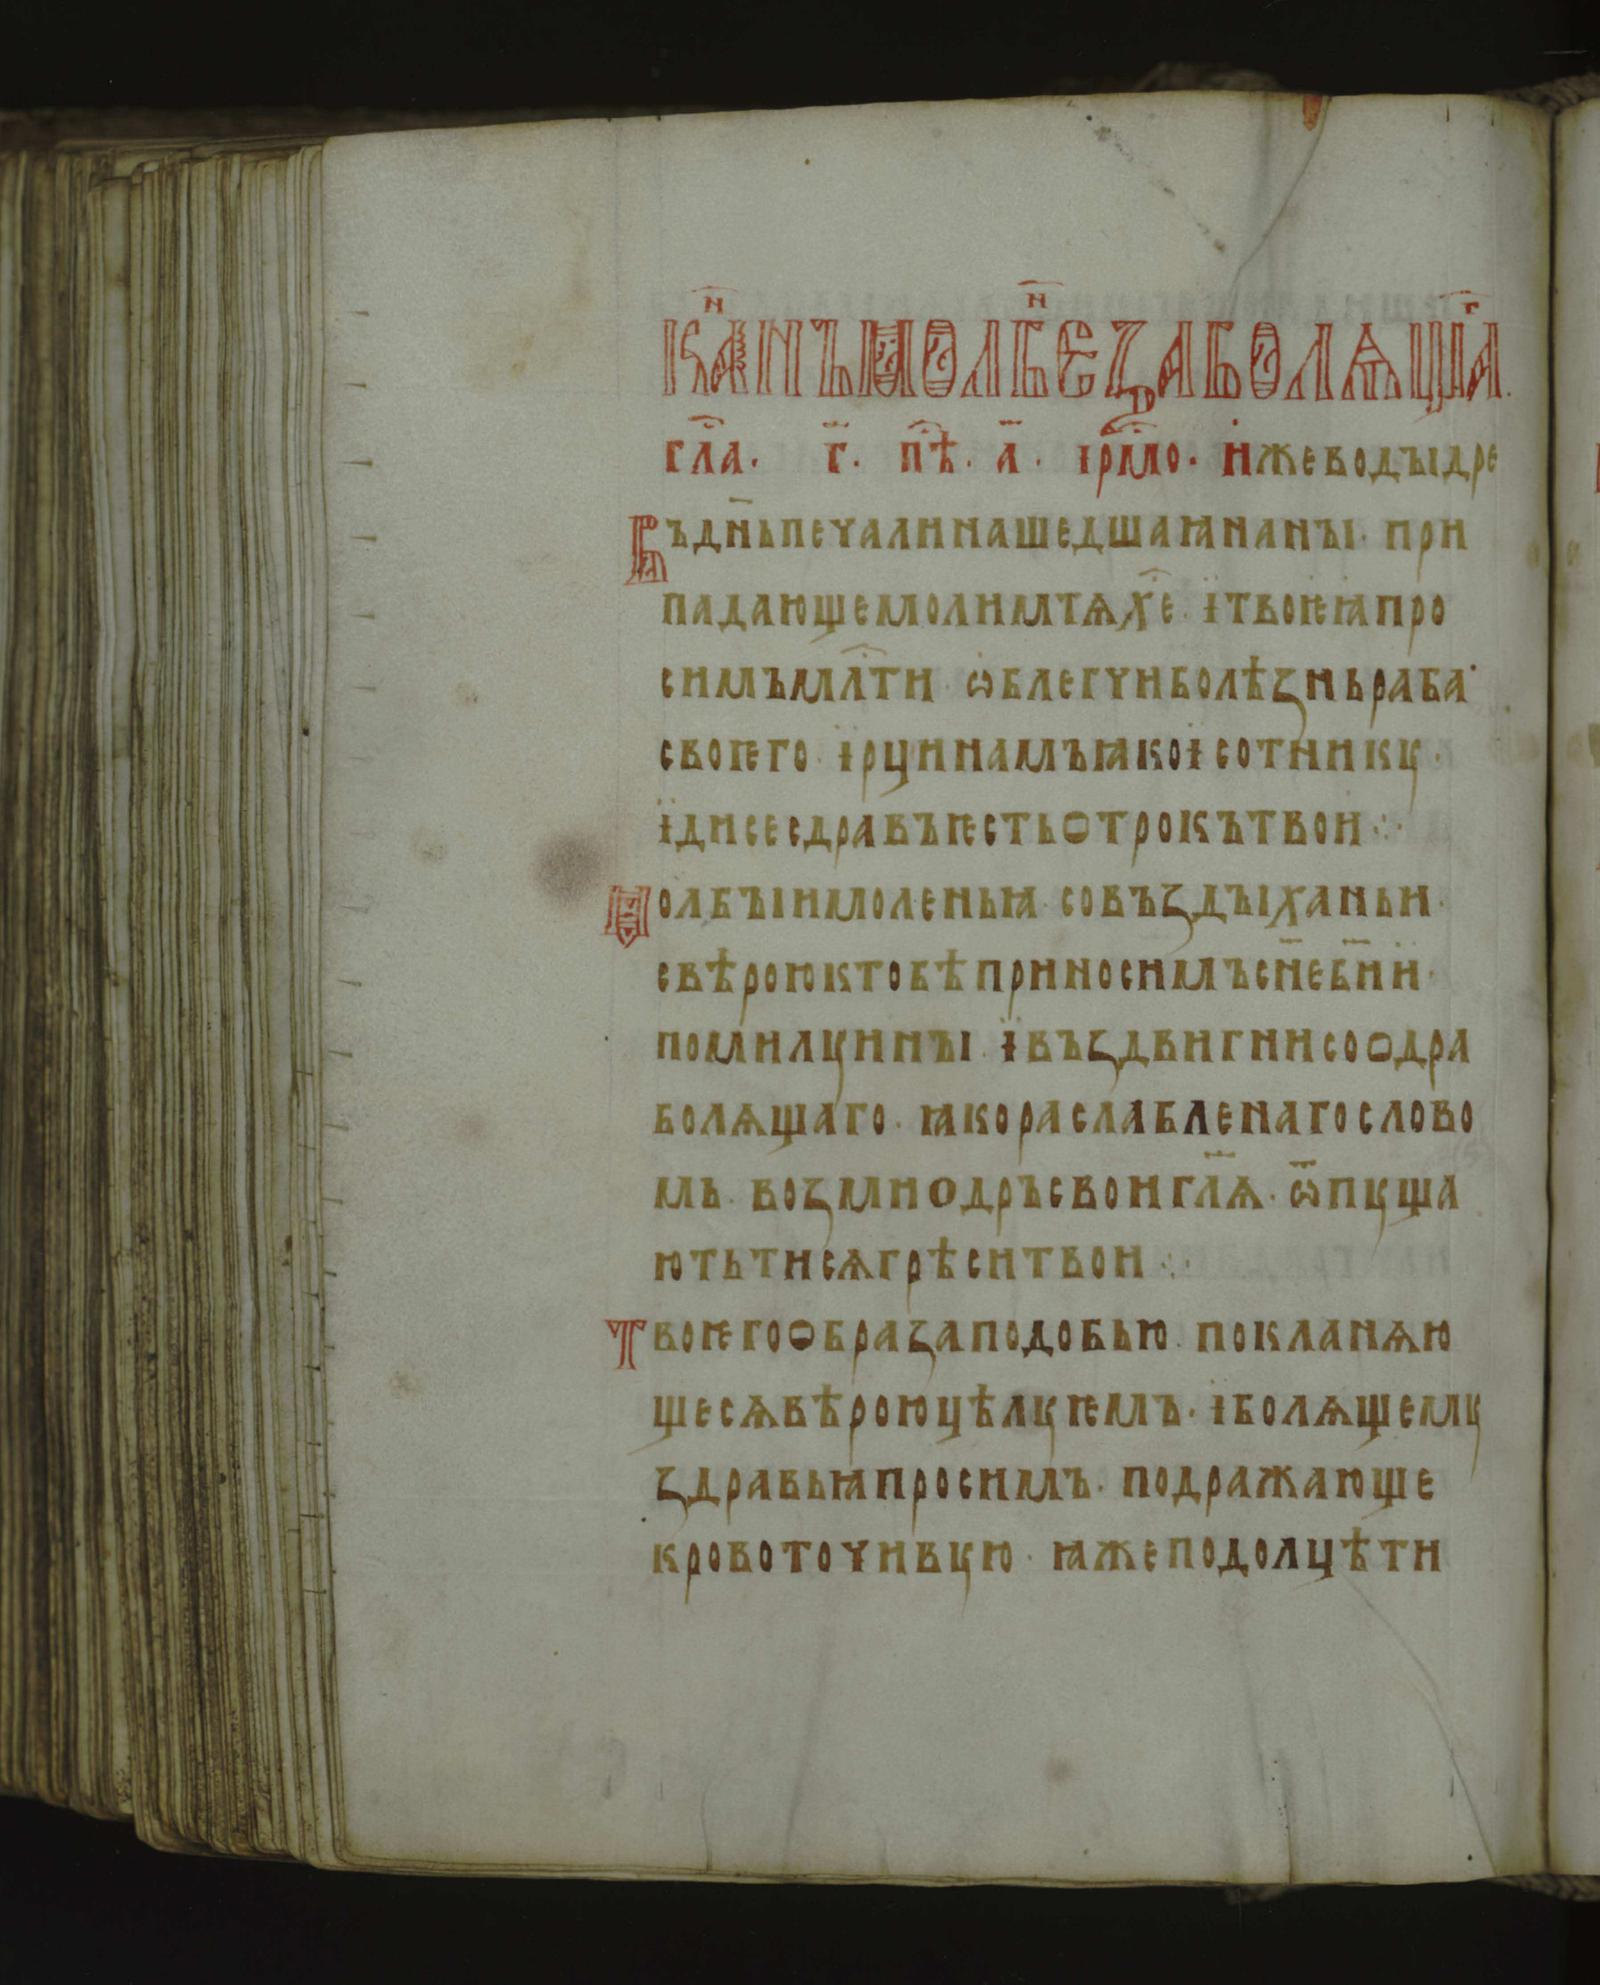 Кⷩ҇АНЪМОЛБⷩ҇ЕЗАБОЛѦЩАⷢ҇
гл҃а· г҃· пѣ҃· а҃· ірⷣмо· Ижеводꙑдре
Въдн҃ьпечалинашедшаꙗнанꙑ· при
падающемолимтѧх҃е· їтвоꙗꙗпро
симъмлⷭ҇ти· ѡблегчиболѣꙁньраба
своѥго· їрцинамъꙗкоісотникꙋ·
їдисесдравъѥстьотрокътвои ⁘
Молбꙑимоленьꙗ· совъꙁдꙑханьи·
свѣроюктобѣприносимъсп҃еб҃ии·
помилꙋинꙑ· ївъꙁдвигнисоодра
болѧщаго· ꙗкораслабленагослово
мь· воꙁмиодръсвоигл҃ѧ· ѿпꙋща
ютьтисѧгрѣситвои ⁘
Твоѥгообраꙁаподобью· покланѧю
щесѧвѣроюцѣлꙋѥмъ· іболѧщемꙋ
ꙁдравьꙗпросимъ· подражающе
кровоточивꙋю· ꙗжеподолцѣти